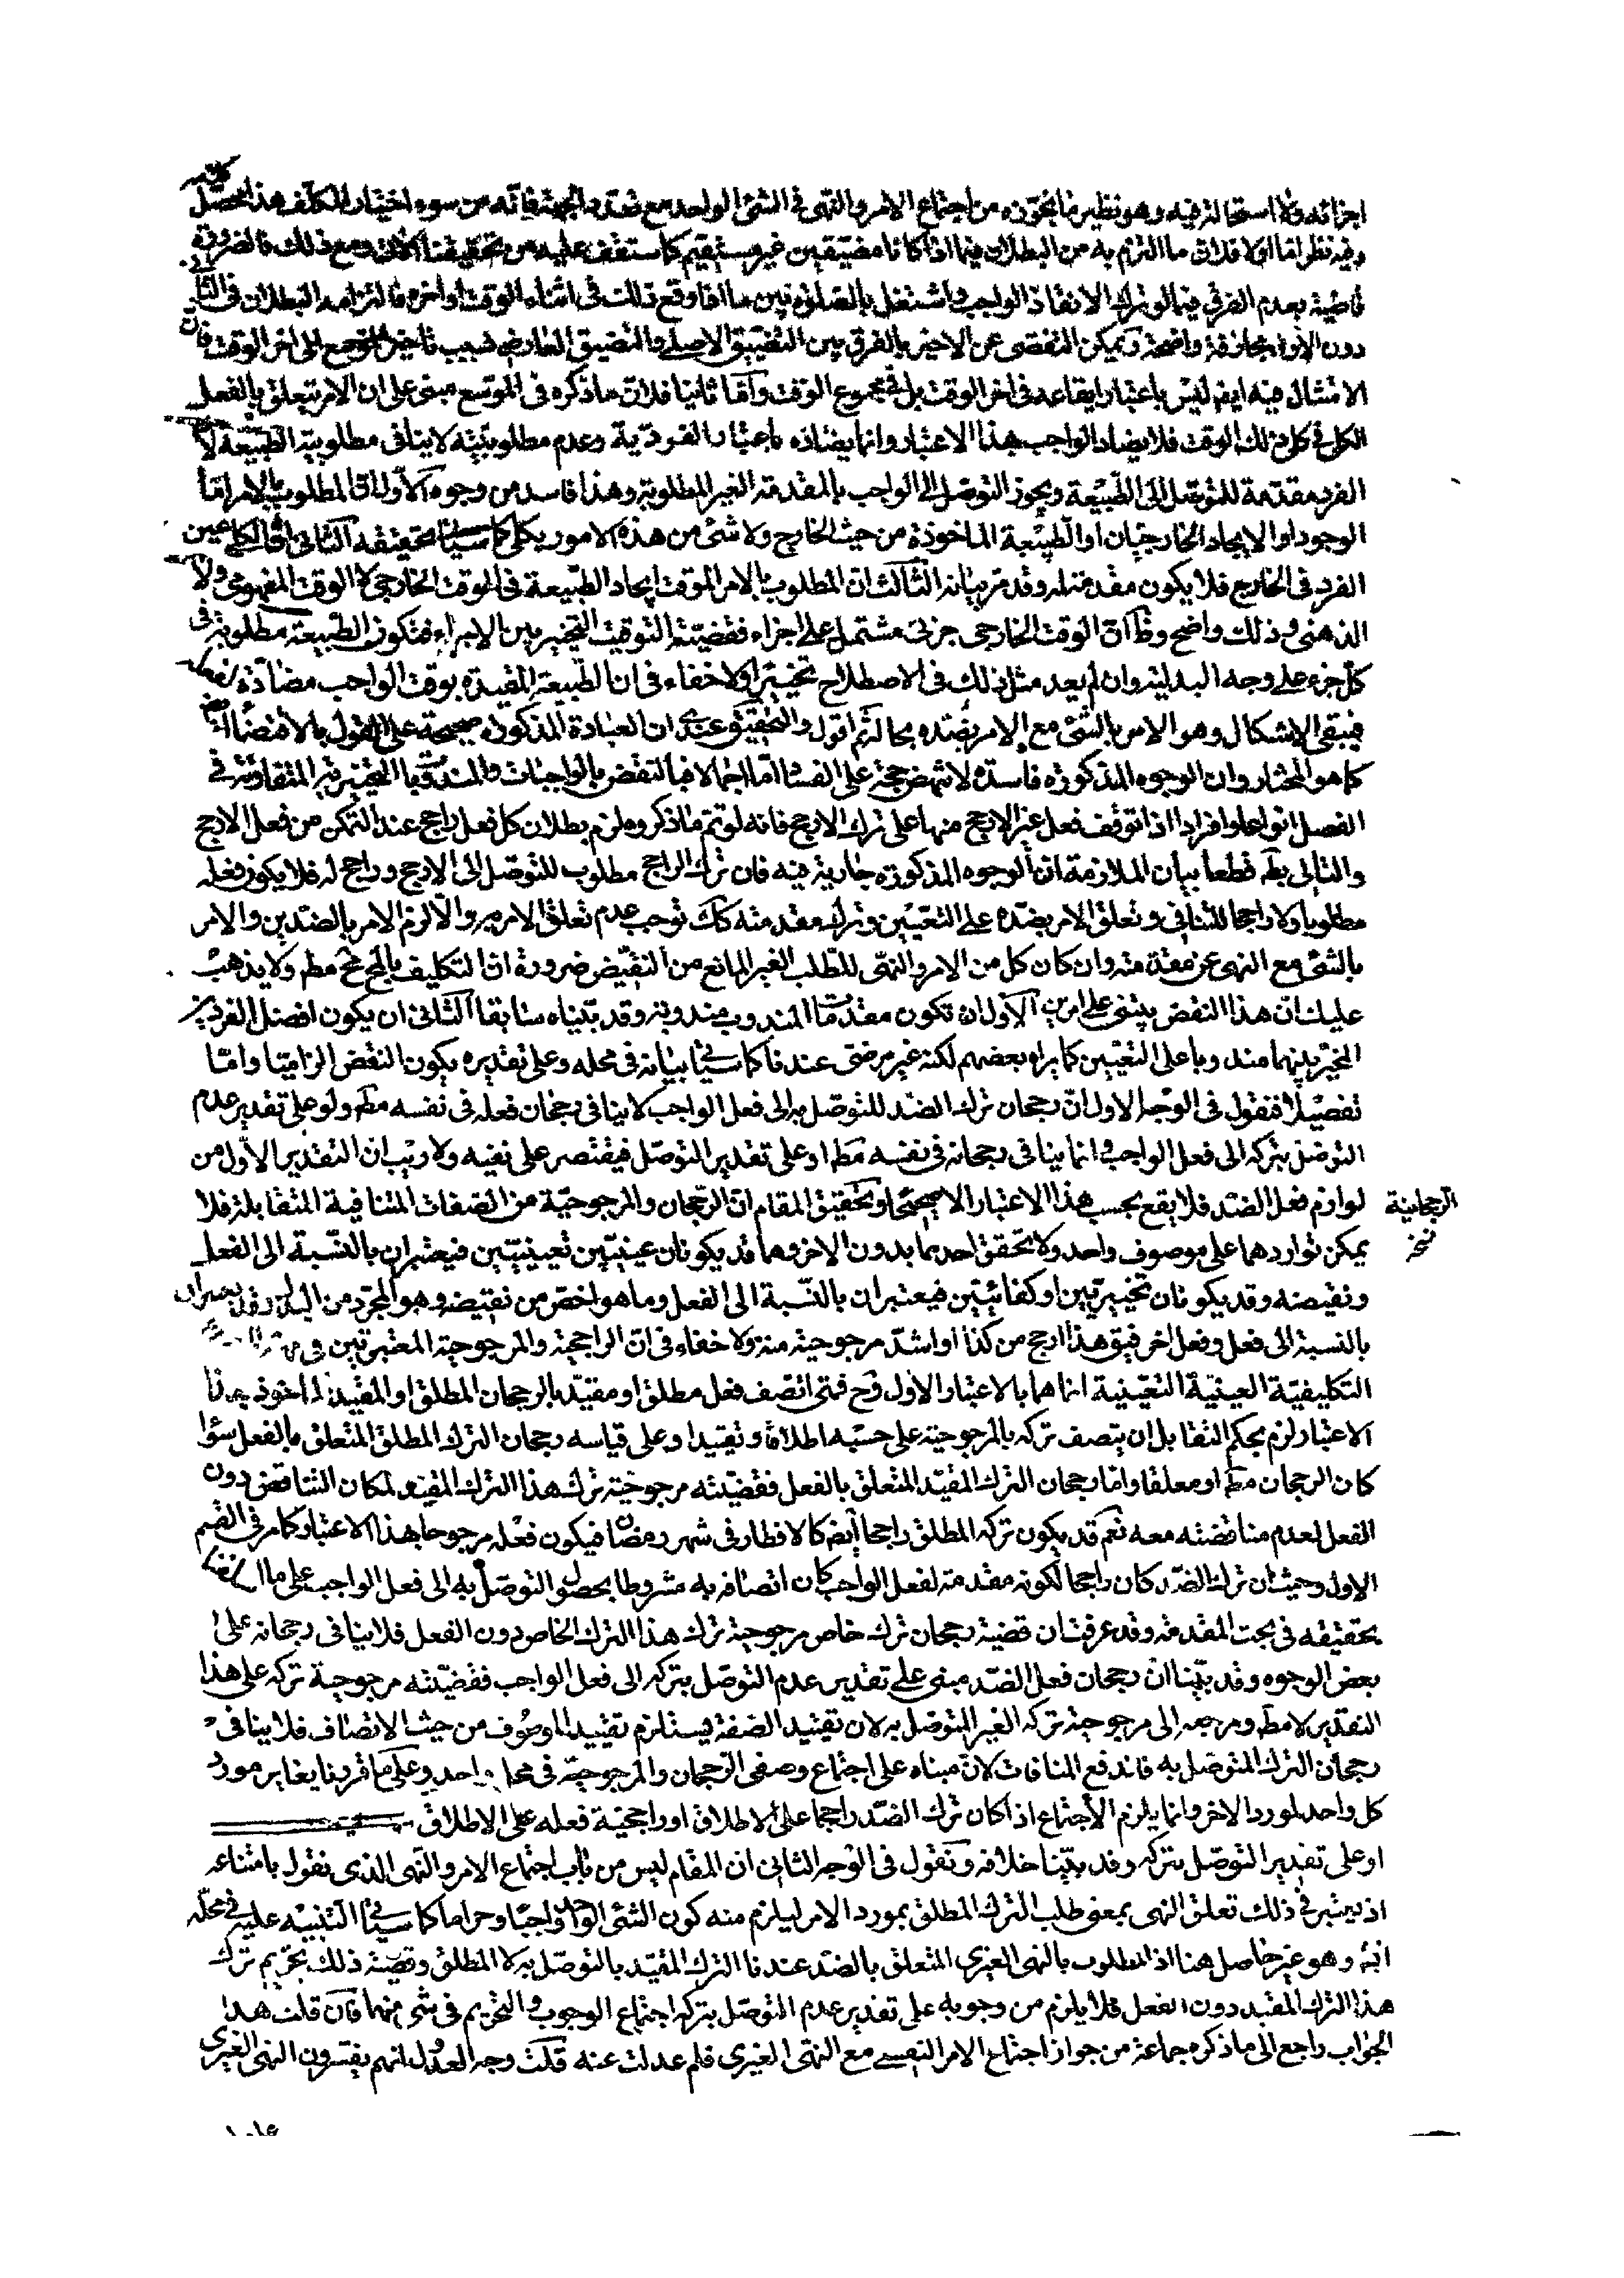 اجزائه ولا استحالة فيه وهو نظير ما يجوزه من اجتماع الامر والنهى فى الشئ الواحد مع تعدد الجهة فانه من سوء اختيار المكلف هذا محصل كلامه
وفيه نظر اما اولا فلان ما التزم به من البطلان فيما اذا كانا مضيقين غير مستقيم كما ستقف عليه من تحقيقنا الآتى ومع ذلك فالضرورة
قاضية بعدم الفرق فيما لو ترك الانقاذ الواجب واشتغل بالصلوة بين ما اذا وقع ذلك فى اثناء الوقت او اخره فالتزامه البطلان فى الثانى
دون الاول مجازفة واضحة ويمكن التفصى عن الاخير بالفرق بين التضييق الاصلى والتضييق العارضى بسبب تاخير الموسع الى اخر الوقت فان
الامتثال فيه ايضا ليس باعتبار ايقاعه فى اخر الوقت بل فى مجموع الوقت وآما ثانيا فلان ما ذكره فى الموسع مبنى على ان الامر يتعلق بالفعل
الكلى فى كل ذلك الوقت فلا يضاد الواجب بهذا الاعتبار وانما يضاده باعتبار الفردية وعدم مطلوبيته لا ينافى مطلوبية الطبيعة لان
الفرد مقدمة للتوصل الى الطبيعة ويجوز التوصل الى الواجب بالمقدمة الغير المطلوبة وهذا فاسد من وجوه الاول ان المطلوب بالامر اما
الوجود او الايجاد الخارجيان او الطبيعة الماخوذة من حيث الخارج ولا شئ من هذه الامور بكلى كما سياتى تحقيقه الثانى ان الكلى عين
الفرد فى الخارج فلا يكون مقدمة له وقد مر بيانه الثالث ان المطلوب بالامر الموقت ايجاد الطبيعة فى الوقت الخارجى لا الوقت المفهومى ولا
الذهنى وذلك واضح وظ ان الوقت الخارجى جزئى مشتمل على اجزاء فقضية التوقيت التخيير بين الاجزاء فتكون الطبيعة مطلوبة فى
كل جزء على وجه البدلية وان لم يعد مثل ذلك فى الاصطلاح تخييرا ولا خفاء فى ان الطبيعة المقيدة بوقت الواجب مضادة لفعله
فيبقى الاشكال وهو الامر بالشئ مع الامر بضده بحاله ثم اقول والتحقيق عندى ان العبادة المذكورة صحيحة على القول بالاقتضاء ايضا
كما هو المختار وان الوجوه المذكورة فاسدة لا تنهض حجة على الفساد اما اجمالا فبالنقض بالواجبات والمندوبات التخييرية المتفاوتة فى
الفضل انواعا وافرادا اذا توقف فعل غير الارجح منها على ترك الارجح فانه لو تم ما ذكروه لزم بطلان كل فعل راجح عند التمكن من فعل الارجح
والتالى بط قطعا بيان الملازمة ان الوجوه المذكورة جارية فيه فان ترك الراجح مطلوب للتوصل الى الارجح وراجح له فلا يكون فعله
مطلوبا ولا راجحا للتنافى وتعلق الامر بضده على التعيين وترك مقدمته كك توجب عدم تعلق الامر به والا لزم الامر بالضدين والامر
بالشئ مع النهى عن مقدمته وان كان كل من الامر والنهى للطلب الغير المانع من النقيض ضرورة ان التكليف بالمح مح مط ولا يذهب
عليك ان هذا النقض يبتنى على امرين الاول ان تكون مقدمات المندوب مندوبة وقد بيناه سابقا الثانى ان يكون افضل الفردين
المخير بينهما مندوبا على التعيين كما يراه بعضهم لكنه غير مرضى عندنا كما سياتى بيانه فى محله وعلى تقديره يكون النقض الزاميا واما
تفصيلا فنقول فى الوجه الاول ان رجحان ترك الضد للتوصل به الى فعل الواجب لا ينافى رجحان فعله فى نفسه مط ولو على تقدير عدم
التوصل بتركه الى فعل الواجب وانما ينافى رجحانه فى نفسه مط او على تقدير التوصل فيقتصر على نفيه ولا ريب ان التقدير الاول من
لوازم فعل الضد فلا يقع بحسب هذا الاعتبار الا صحيحا وتحقيق المقام ان الرجحان والمرجوحية من الصفات المتنافية المتقابلة فلا
الرجحانية نخ
يمكن تواردهما على موصوف واحد ولا تحقق احدهما بدون الاخر وهما قد يكونان عينيتين تعيينيتين فيعتبران بالنسبة الى الفعل
ونقيضه وقد يكونان تخييريتين او كفائيتين فيعتبران بالنسبة الى الفعل وما هو اخص من نقيضه وهو المجرد من البدل وقد يعتبران
بالنسبة الى فعل وفعل اخر فيق هذا ارجح من كذا او اشد مرجوحية منه ولا خفاء فى ان الراجحية والمرجوحية المعتبرتين فى
التكليفية العينية التعيينية انما هما بالاعتبار الاول وح فمتى اتصف فعل مطلق او مقيد بالرجحان المطلق او المقيد الماخوذ بهذا
الاعتبار لزم بحكم التقابل ان يتصف تركه بالمرجوحية على حسبه اطلاقا وتقييدا وعلى قياسه رجحان الترك المطلق المتعلق بالفعل سواء
كان الرجحان مط او معلقا واما رجحان الترك المقيد المتعلق بالفعل فقضيته مرجوحية ترك هذا الترك المقيد لمكان التناقض دون
الفعل لعدم مناقضته معه نعم قد يكون تركه المطلق راجحا ايضا كالافطار فى شهر رمضان فيكون فعله مرجوحا بهذا الاعتبار كما مر فى القسم
الاول وحيث ان ترك الضد كان راجحا لكونه مقدمة لفعل الواجب كان اتصافه به مشروطا بحصول التوصل به الى فعل الواجب على ما
تحقيقه فى بحث المقدمة وقد عرفت ان قضية رجحان ترك خاص مرجوحية ترك هذا الترك الخاص دون الفعل فلا ينافى رجحانه على
بعض الوجوه وقد بينا ان رجحان فعل الضد مبنى على تقدير عدم التوصل بتركه الى فعل الواجب فقضيته مرجوحية تركه على هذا
التقدير لا مط ومرجعه الى مرجوحية تركه الغير المتوصل به لان تقييد الصفة يستلزم تقييد الموصوف من حيث الاتصاف فلا ينافى
رجحان الترك المتوصل به فاندفع المنافات لان مبناه على اجتماع وصفى الرجحان والمرجوحية فى محل واحد وعلى ما قررنا يغاير مورد
كل واحد لمورد الاخر وانما يلزم الاجتماع اذا كان ترك الضد راجحا على الاطلاق او راجحية فعله على الاطلاق
او على تقدير التوصل بتركه وقد بينا خلافه ونقول فى الوجه الثانى ان المقام ليس من باب اجتماع الامر والنهى الذى نقول بامتناعه
اذ يعتبر فى ذلك تعلق النهى بمعنى طلب الترك المطلق بمورد الامر ليلزم منه كون الشئ الواحد واجبا وحراما كما سياتى التنبيه عليه فى محله
انش وهو غير حاصل هنا اذ المطلوب بالنهى الغيرى المتعلق بالضد عندنا الترك المقيد بالتوصل به لا المطلق وقضية ذلك تحريم ترك
هذا الترك المقيد دون الفعل فلا يلزم من وجوبه على تقدير عدم التوصل بتركه اجتماع الوجوب والتحريم فى شئ منهما فان قلت هذا
الجواب راجع الى ما ذكره جماعة من جواز اجتماع الامر النفسى مع النهى الغيرى فلم عدلت عنه قلت وجه العدول انهم يفسرون النهى الغيرى